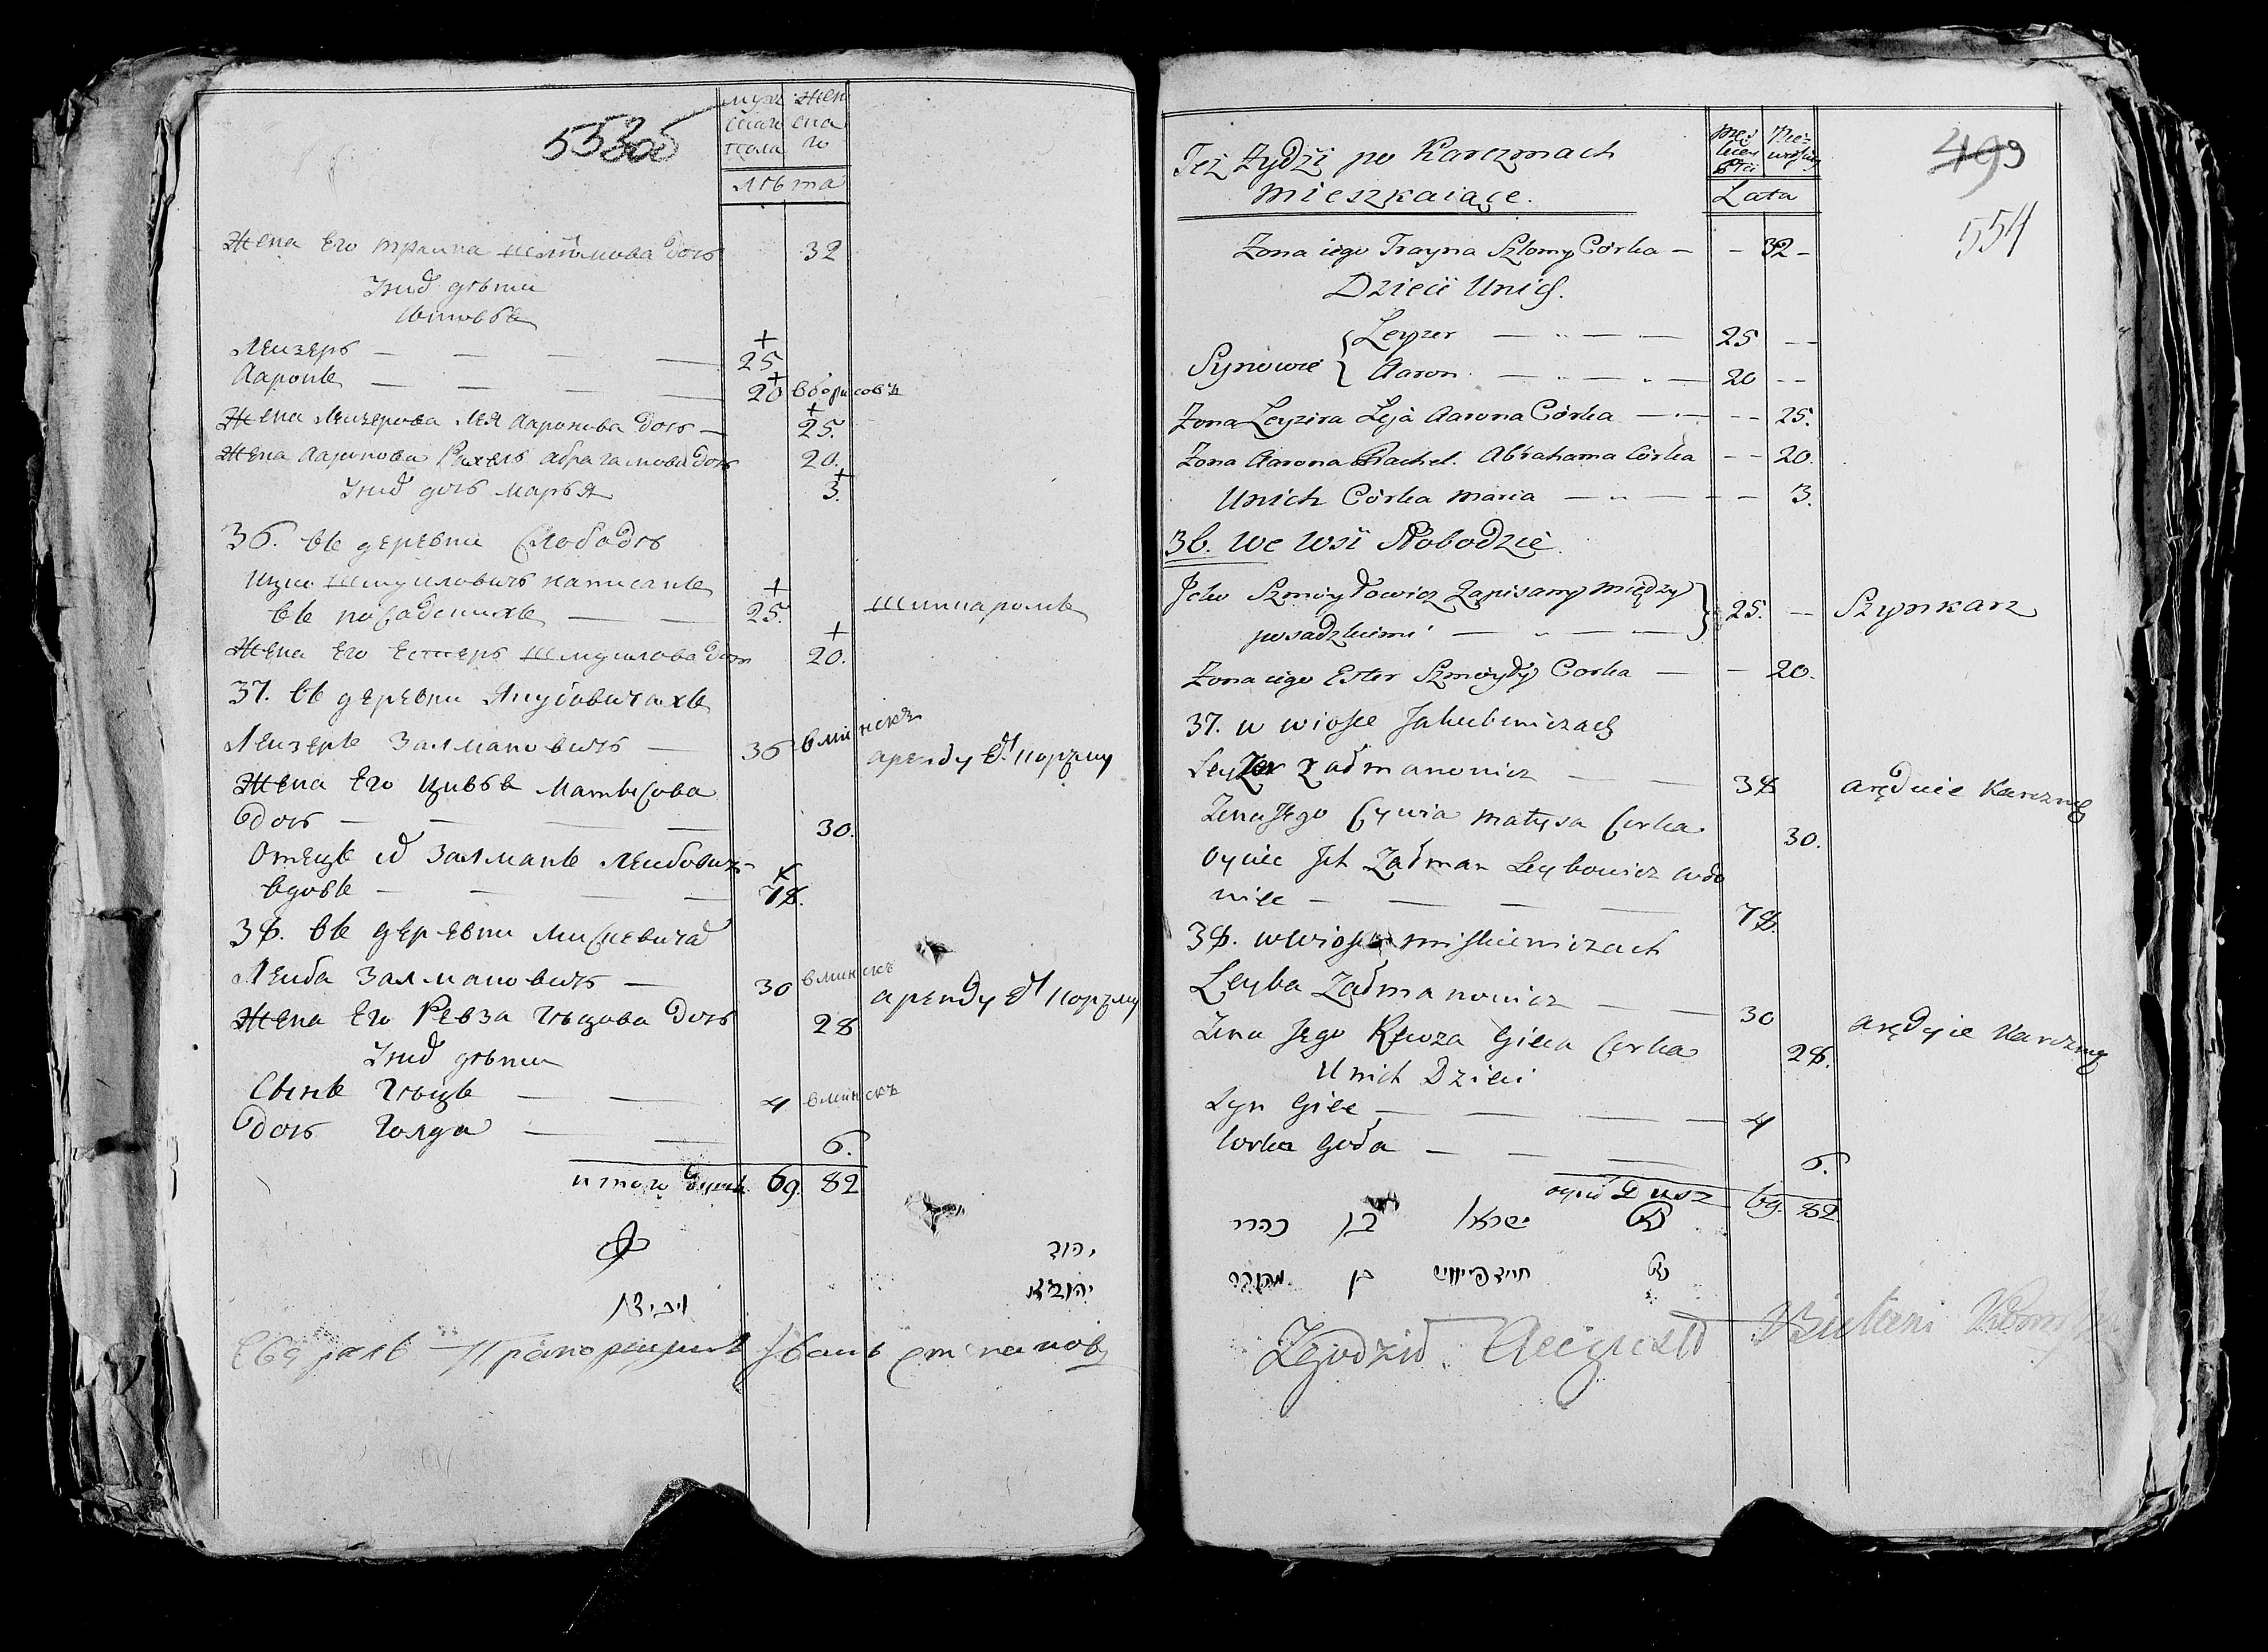 553об
муж жен
скаго ска
пола го
лѣта
Жена Его траина шлiомова дочь 32
Унид дѣти
сыновья
Леизеръ — — — — 25
Ааронъ — — — — 20 вборисовъ
Жена Леизерова Лея Ааронова дочь — 25.
Жена Ааронова Рахель абрагамова дочь 20.
Унид дочь марья 3.
36. въ деревни Слободѣ
Ицко Шмуиловичъ написанъ
въ посадскихъ — — 25. шинкаромъ
Жена Его Естеръ Шмуилова дочь 20.
37. въ деревни Якубовичахъ
Леизеръ Залмановичъ — 36 вминскъ аренду ет корчму
Жена Его цивья Матысова
дочь — — — — 30.
Отецъ ид Залманъ Леибовичъ
вдовъ — — — — 78.
38. въ деревни мискевичад
Леиба Залмановичъ — 30 вминскъ аренду ет корчму
Жена Его Ревза Гецова дочь 28
Унид дѣти
Сынъ Гецъ — — 4 вминскъ
дочь Голда — — 6.
итого душъ 69. 82
יהוד
Прапорщикъ Иванъ степановъ
499
554
Też Żydźi po Karczmach
mieszkaiące.
Męs Nie
kiey wieściey
Płci
Lata
Zona iego Trayna Szlomy Córka — — 32 —
Dziecii Unich.
Synowie { Leyzer — — — 25 — —
Aaron — — — 20 — —
Zona Leyzera Leja Aarona Córka — — — 25.
Zona Aarona Rachel. Abrahama Córka — — 20.
Unich Córka Maria — — — — 3.
36. We Wsi Słobodzie
Icko Szmóyłowicz Zapisany między
posadzkiemi — — — 25. — Szynkarz
Zona iego Ester Szmóyły Corka — — 20.
37. w wiosce Jakubowiczach
Leyzer Załmanowicz — — 38 aręduie Karczmę
Zona Jego Cywia Matysa Corka 30.
Oyciec Ich Załman Leybowicz wdo
wiec — — — — 78.
38. w wiosce miskiewiczach
Leyba Załmanowicz — — 30 aręduie Karczmę
Zona Jego Rewza Gieca Corka 28.
Unich Dzieci
Syn Giec — — — 4
Corka Gołda — — — 6.
ogół Dusz 69. 82.
ישראל בן
בן
Zgodzić August